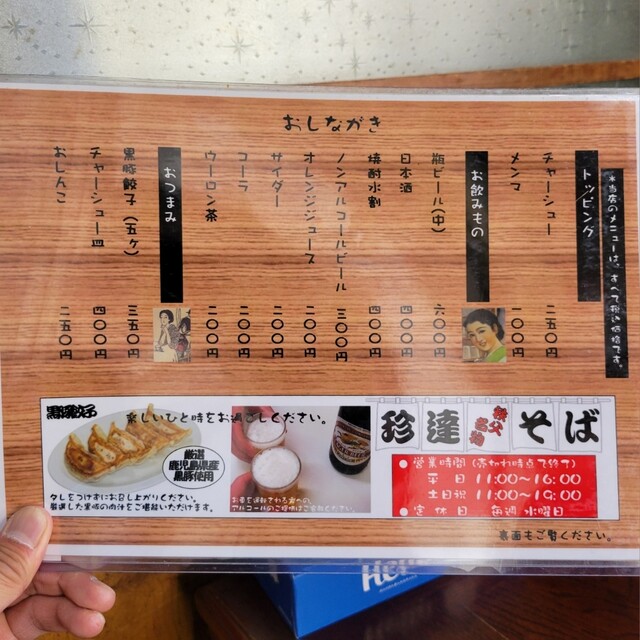 おしながき
※当店のメニューは、すべて税込価格です。
トッピング
チャーシュー 二五〇円
メンマ 一〇〇円
お飲みもの
瓶ビール(中) 六〇〇円
日本酒 四〇〇円
焼酎水割 四〇〇円
ノンアルコールビール 三〇〇円
オレンジジュース 二〇〇円
サイダー 二〇〇円
コーラ 二〇〇円
ウーロン茶 二〇〇円
おつまみ
黒豚餃子(五ヶ) 三五〇円
チャーシュー皿 四〇〇円
おしんこ 二五〇円
黒豚餃子
楽しいひと時をお過ごしください。
厳選
鹿児島県産
黒豚使用
タレをつけずにお召し上がりください。
厳選した黒豚の肉汁をご堪能いただけます。
お車を運転される方への、
アルコールのご提供はご遠慮ください。
秩父名物
珍達そば
● 営業時間(売切れ時点で終了)
平 日 11:00~16:00
土日祝 11:00~19:00
● 定休日 毎週 水曜日
裏面もご覧ください。